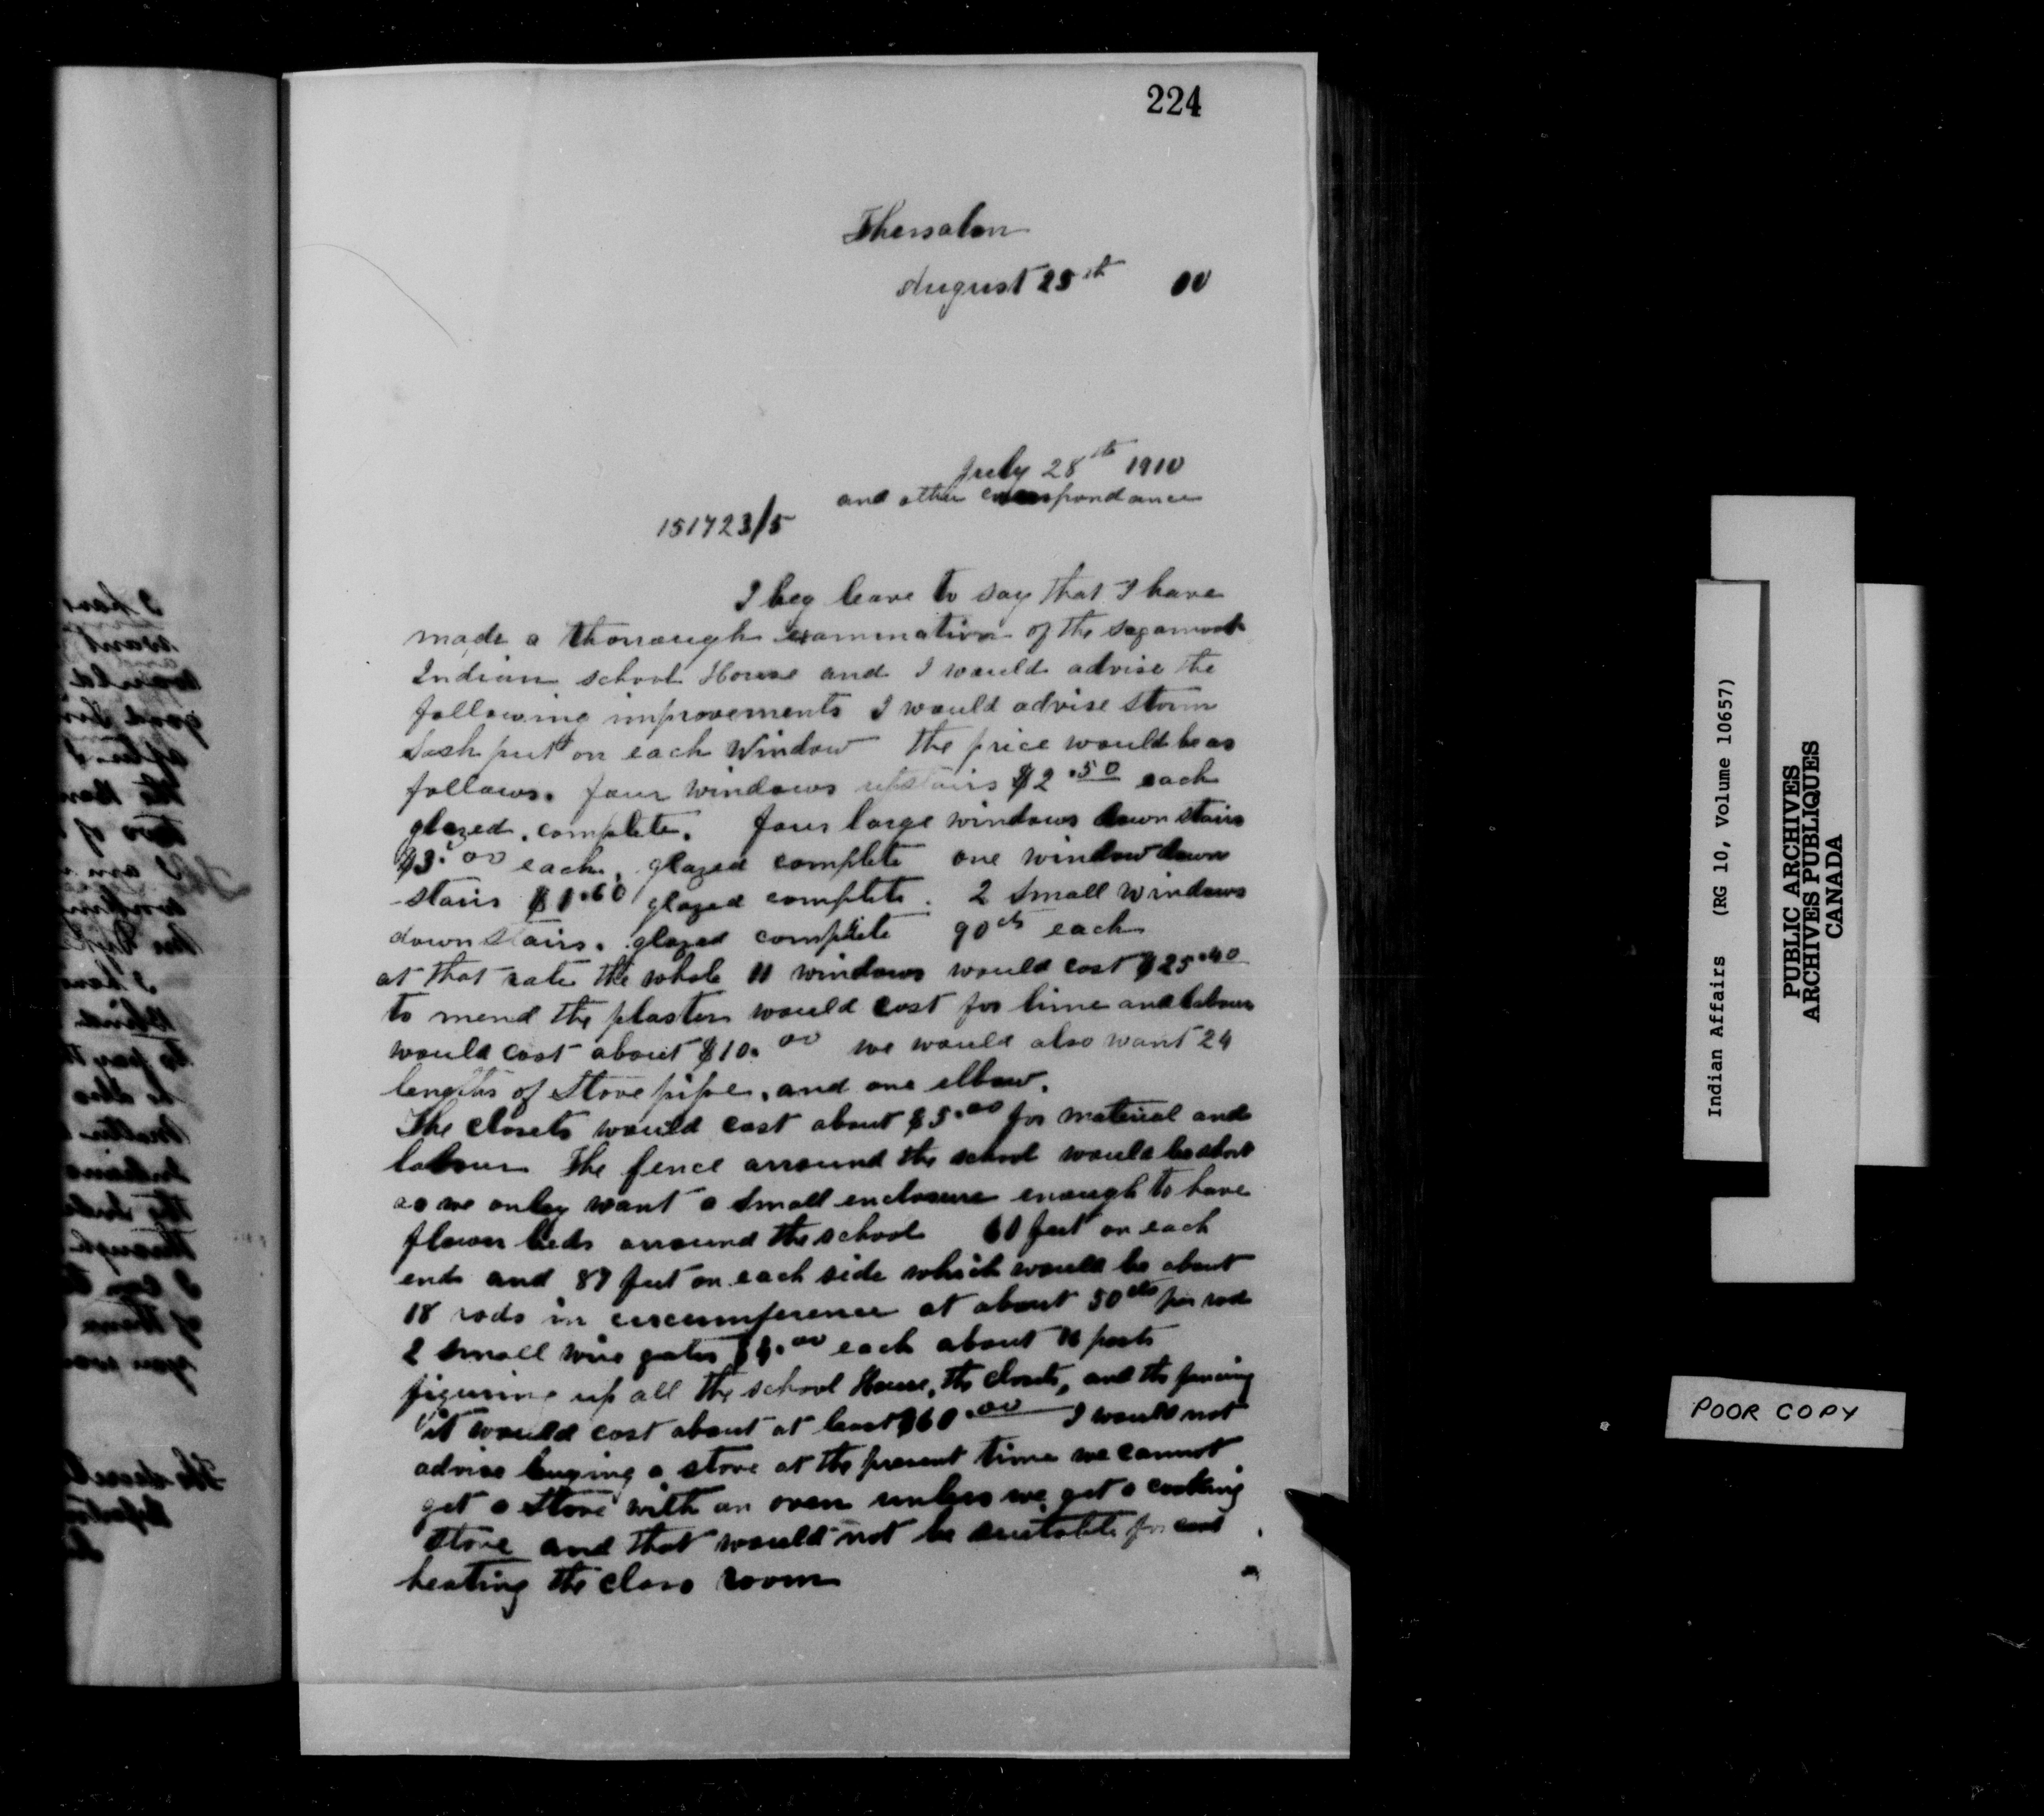 224
Thessalon
August 25th 00
July 28th 1910
and other correspondance
151723/5
I beg leave to say that I have
made a thorraugh examination of the Sagamook
Indian school House and I would advise the
following improvements I would advise storm
Sash put on each Window the price would be as
follows. four windows upstairs $2.50 each
glazed. complete. four large windows down stairs
$3.00 each. glazed complete one window down
stairs $1.60 glazed complete. 2 small windows
down stairs. glazed complete 90cts each
at that rate the whole 11 windows would cost $25.40
to mend the plaster would cost for lime and labour
would cost about $10.00 we would also want 24
lengths of Stove pipe. and one elbow.
The closets would cost about $5.00 for material and
labour The fence arround the school would be short
as we onley want a small enclosure enough to have
flower beds arround the school 60 feet on each
end and 87 feet on each side which would be about
18 rods in circumference at about 50cts per rod
2 small wire gates $4.00 each about 16 posts
figuring up all the school House, the closets, and the fencing
it would cost about at least $60.00 I would not
advise buying a stove at the present time we cannot
get a stove with an oven unless we get a cooking
stove and that would not be suitable for
heating the class room
Indian Affairs (RG 10, Volume 10657)
PUBLIC ARCHIVES
ARCHIVES PUBLIQUES
CANADA
POOR COPY